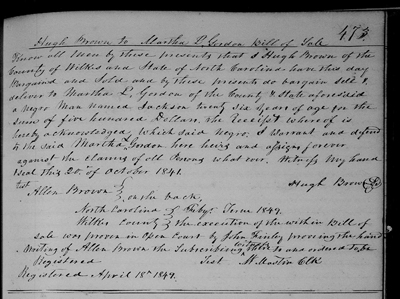 473
Hugh Brown to Martha L. Gordon Bill of Sale
Know all Men by these presents that I Hugh Brown of the
County of Wilkes and State of North Carolina have this day
Bargained and Sold and by these presents do bargain Sell &
deliver to Martha L. Gordon of the County & State aforesaid
a Negro Man named Jackson twenty six years of age for the
Sum of five hundred Dollars, the Receipt whereof is
hereby acknowledged, which said Negro, I Warrant and defend
to the said Martha Gordon here heirs and assigns forever
against the claims of all Persons what ever. Witness my hand
& seal this 20th of October 1841.
Test Hugh Brown
Allen Brown
on the back,
North Carolina } Feby Term 1849.
Wilkes County } the execution of the within Bill of
sale was proven in Open Court by John Finley proveing the hand
Writing of Allen Brown the Subscribing witness thereto and ordered to be
Registered Test Clk
Registered April 18th 1849.